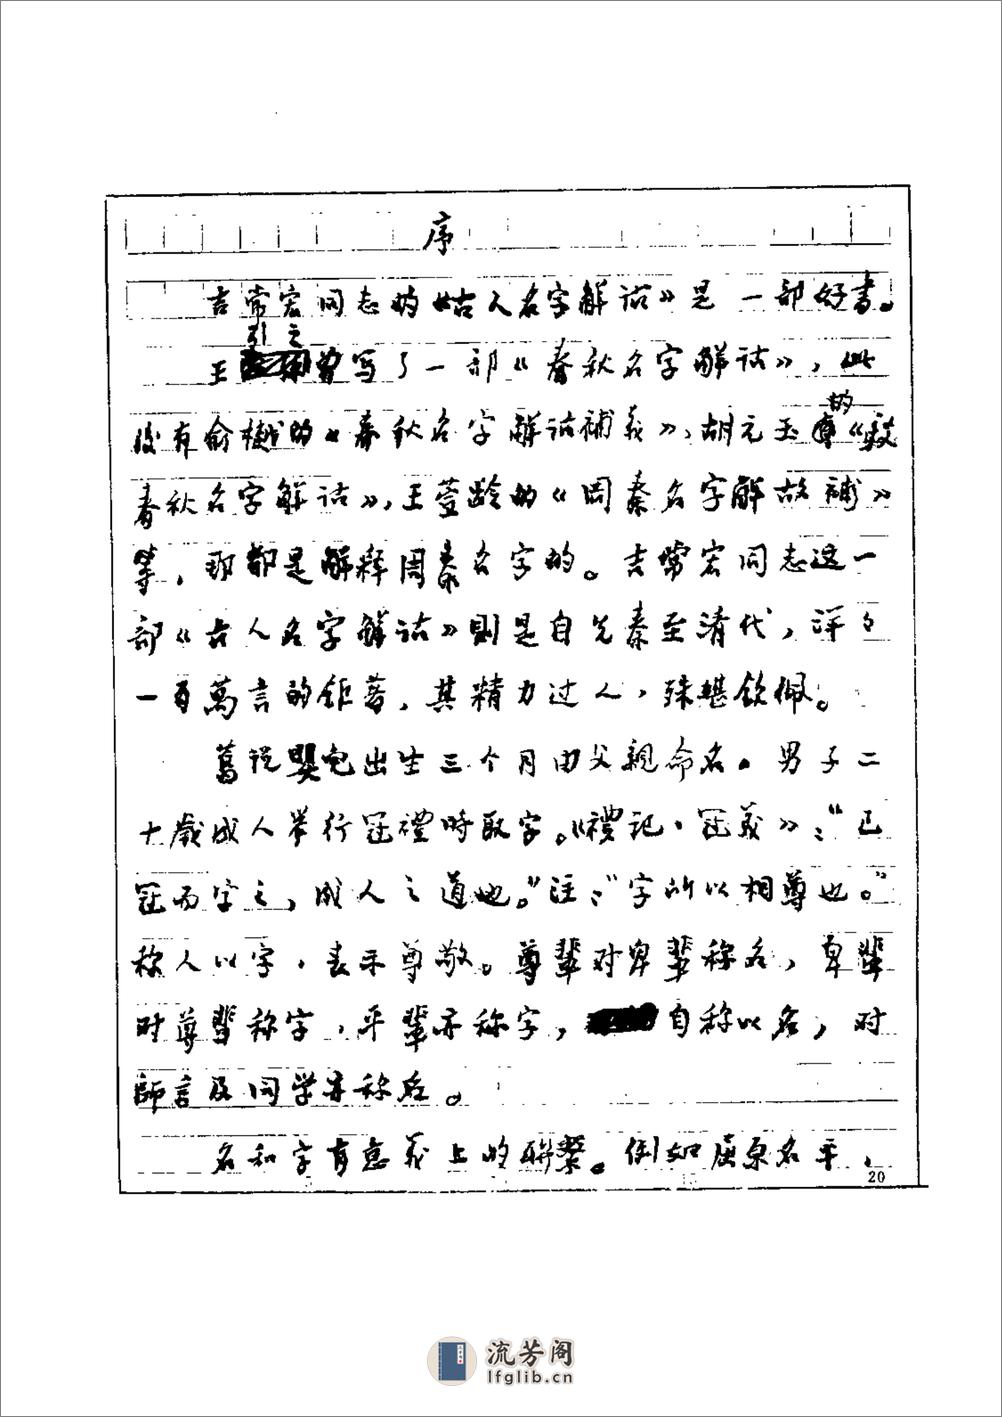 序
吉常宏同志的《古人名字解诂》是一部好书。
王引之曾写了一部《春秋名字解诂》，此
後有俞樾的《春秋名字解诂補義》、胡元玉的《駁
春秋名字解诂》、王萱龄的《周秦名字解故補》
等，那都是解释周秦名字的。吉常宏同志这一
部《古人名字解诂》则是自先秦至清代，洋々
一百萬言的鉅著，其精力过人，殊堪钦佩。
舊说嬰兒出生三个月由父親命名。男子二
十歲成人举行冠禮時取字。《禮记·冠義》：“已
冠而字之，成人之道也。”注：“字所以相尊也。”
称人以字，表示尊敬。尊辈对卑辈称名，卑辈
对尊辈称字，平辈亦称字，自称以名，对
師言及同学亦称名。
名和字有意義上的聯繫。例如屈原名平，
20
流芳阁
lfglib.cn